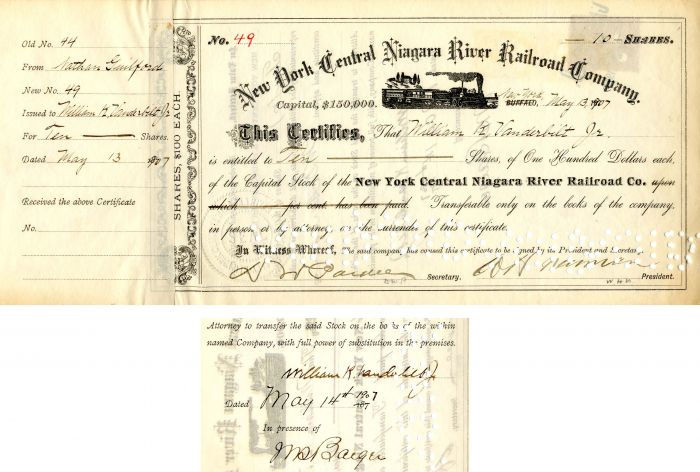 Old No. 44
From Nathan Guilford
New No. 49
Issued to William K. Vanderbilt Jr
For Ten Shares.
Dated May 13 1907
Received the above Certificate
No.
SHARES, $100 EACH.
No. 49
10 SHARES.
New York Central Niagara River Railroad Company.
Capital, $150,000.
New York, BUFFALO, May 13, 1907
This Certifies, That William K. Vanderbilt Jr.
is entitled to Ten Shares, of One Hundred Dollars each,
of the Capital Stock of the New York Central Niagara River Railroad Co. upon
which per cent has been paid. Transferable only on the books of the company,
in person or by attorney on the surrender of this certificate.
In Witness Whereof, the said company has caused this certificate to be signed by its President and Secretary.
D W Pardee Secretary. W H Newman President.
D.W.P. W H N
Attorney to transfer the said Stock on the books of the within
named Company, with full power of substitution in the premises.
William K. Vanderbilt Jr
Dated May 14th 1907
187
In presence of